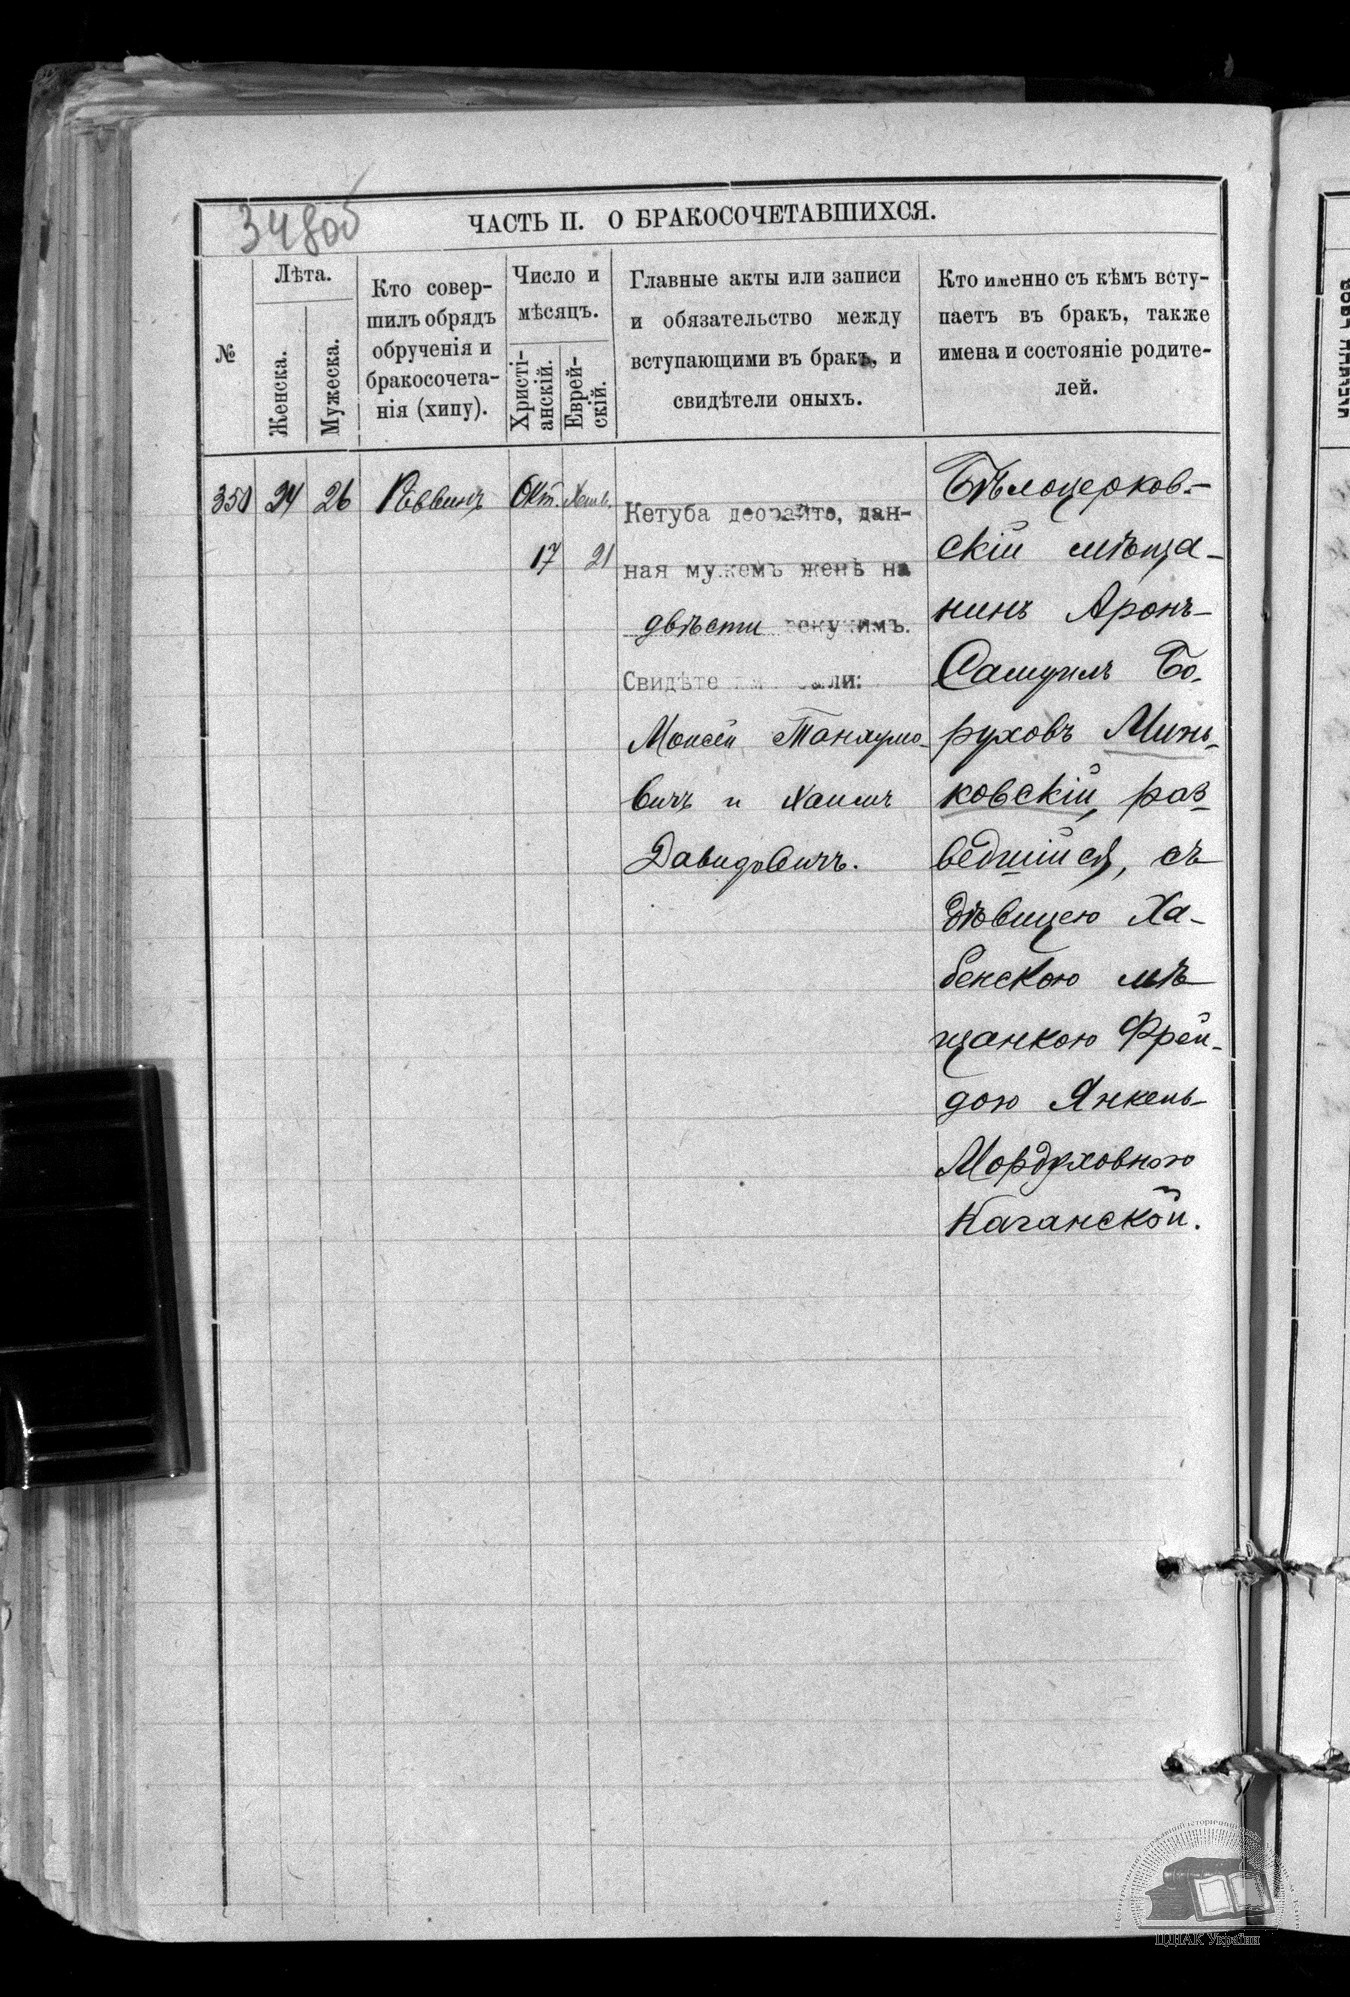 348об
ЧАСТЬ II. О БРАКОСОЧЕТАВШИХСЯ.
№
Лѣта.
Женска.
Мужеска.
Кто совер-
шилъ обрядъ
обрученія и
бракосочета-
нія (хипу).
Число и
мѣсяцъ.
Христі-
анскій.
Еврей-
скій.
Главные акты или записи
и обязательство между
вступающими въ бракъ, и
свидѣтели оныхъ.
Кто именно съ кѣмъ всту-
паетъ въ бракъ, также
имена и состояніе родите-
лей.
350 24 26 Раввинъ Окт. Хешв.
17 21
Кетуба деорайто, дан-
ная мужемъ женѣ на
двѣсти зекукимъ.
Свидѣтели были:
Моисей Танхумо-
вичъ и Хаимъ
Давидовичъ.
Бѣлоцерков-
скій мѣща-
нинъ Аронъ-
Самуилъ Бо-
руховъ Минь-
ковскій, раз-
ведшійся, съ
дѣвицею Ха-
бенскою мѣ-
щанкою Фрей-
дою Янкель-
Мордуховною
Каганской.
ЦДІАК України